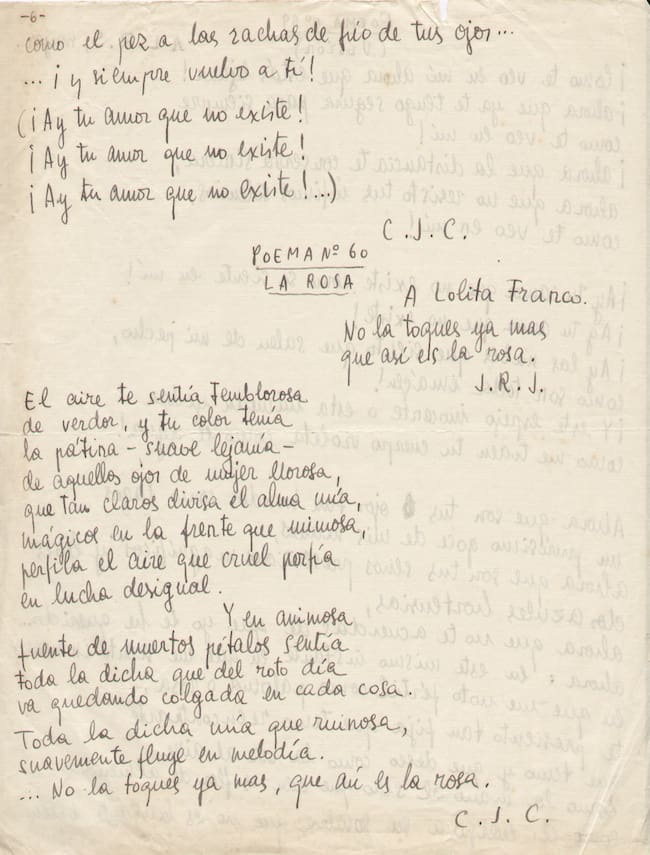 -6-
como el pez a las rachas de frío de tus ojos...
...¡y siempre vuelvo a tí!
(¡Ay tu amor que no existe!
¡Ay tu amor que no existe!
¡Ay tu amor que no existe!...)
C.J.C.
POEMA Nº 60
LA ROSA
A Lolita Franco.
No la toques ya mas
que así es la rosa.
J.R.J.
El aire te sentía temblorosa
de verdor, y tu color tenía
la pátina - suave lejanía -
de aquellos ojos de mujer llorosa,
que tan claros divisa el alma mía,
mágicos en la frente que mimosa,
perfila el aire que cruel porfía
en lucha desigual.
Y en animosa
fuente de muertos pétalos sentía
toda la dicha que del roto día
va quedando colgada en cada cosa.
Toda la dicha mía que ruinosa,
suavemente fluye en melodía.
... No la toques ya mas, que así es la rosa.
C.J.C.